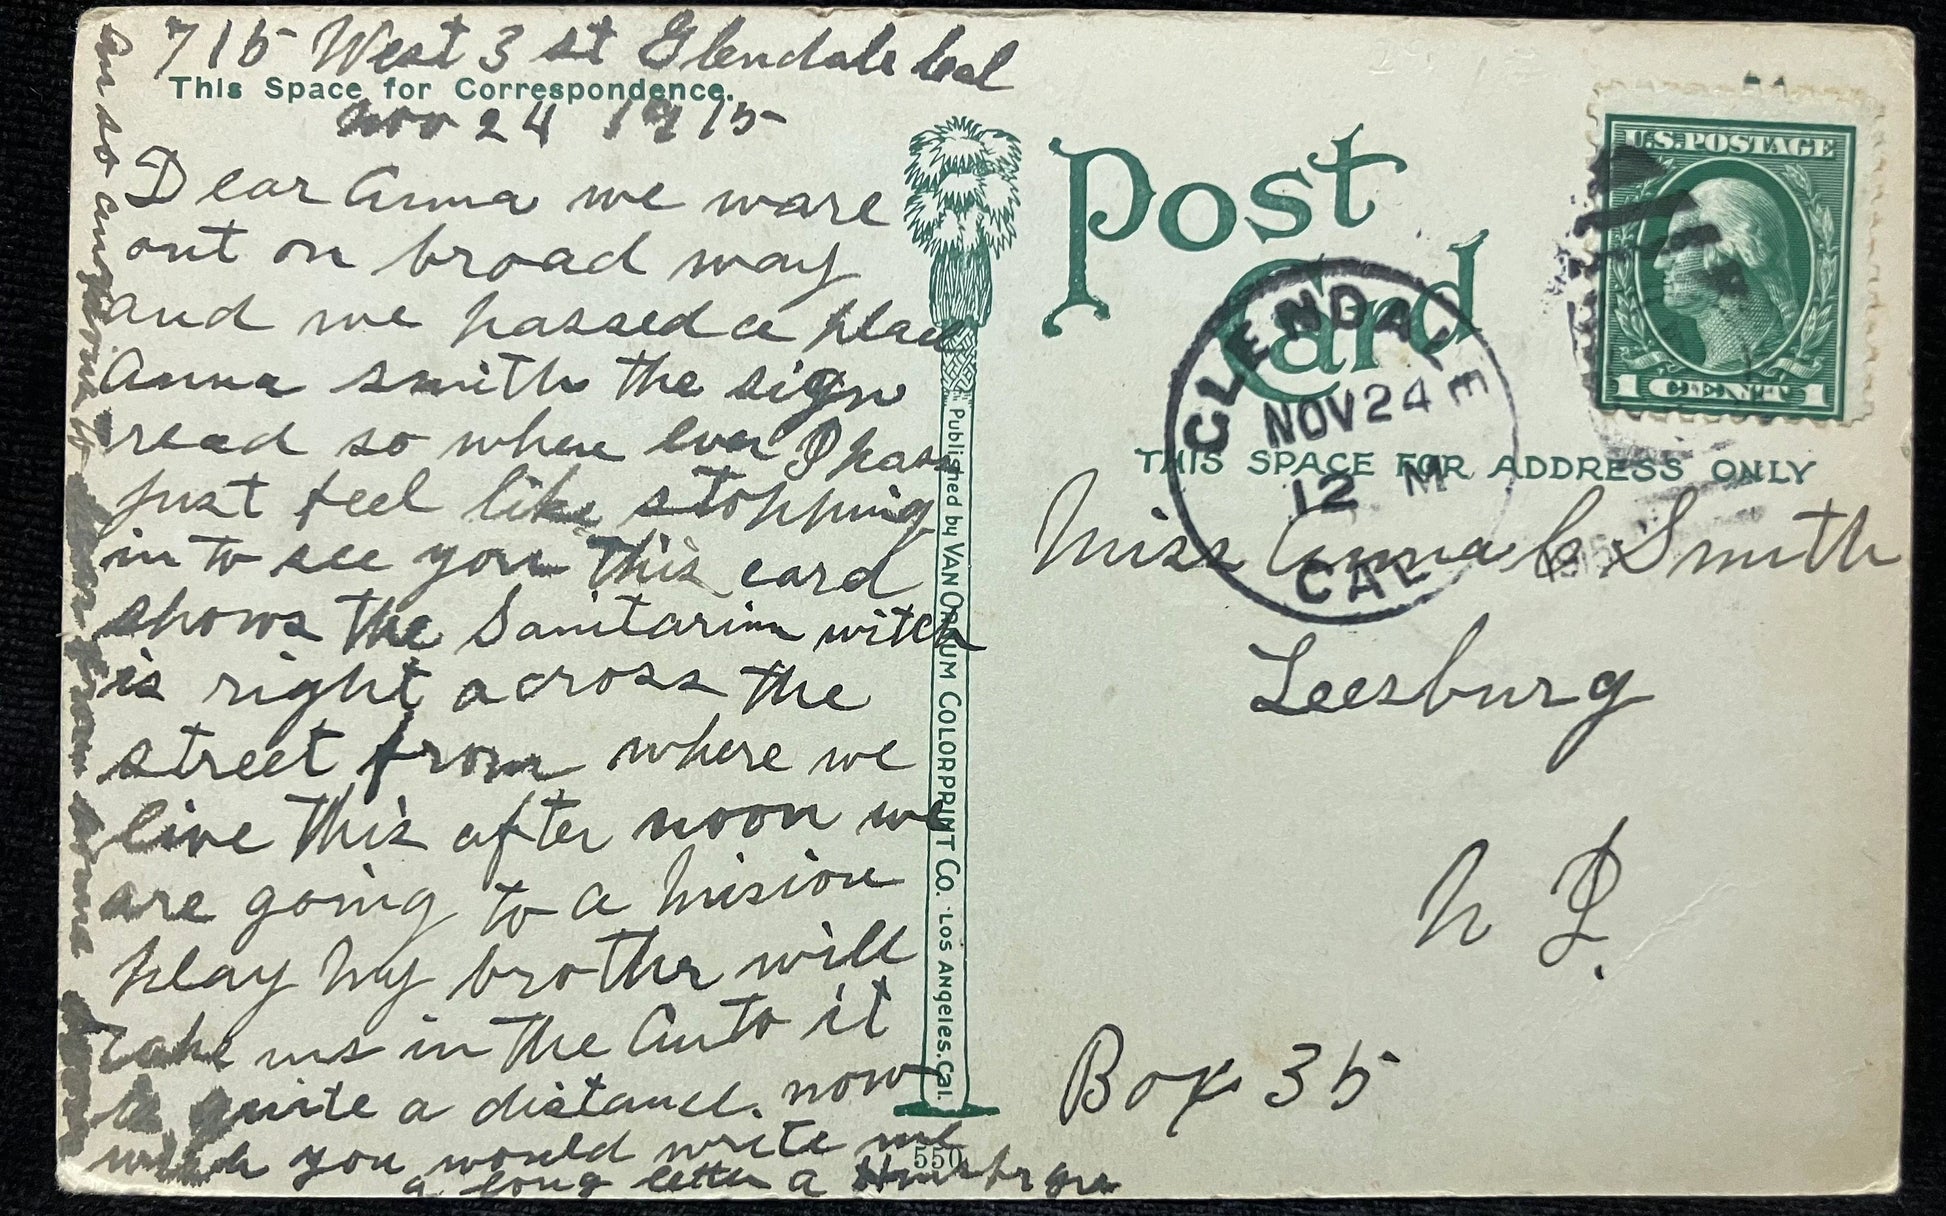 715 West 3 st Glendale Cal
This Space for Correspondence.
Nov 24 1915
Dear Anna we ware
out on broad way
and we passed a place
Anna Smith the sign
read so where ever I pass
just feel like stopping
in to see you This card
shows the Sanitarim witch
is right across the
street from where we
live This after noon we
are going to a Mision
play My brother will
take us in the Auto it
is quite a distance. now
wish you would write me
a long letter
am so anxious to hear from
Published by VAN ORNUM COLORPRINT CO. LOS ANGELES. CAL.
550
Post
Card
U.S. POSTAGE
1 CENT 1
GLENDALE
NOV 24
12 M
CAL
THIS SPACE FOR ADDRESS ONLY
Miss Anna C Smith
Leesburg
N J.
Box 35